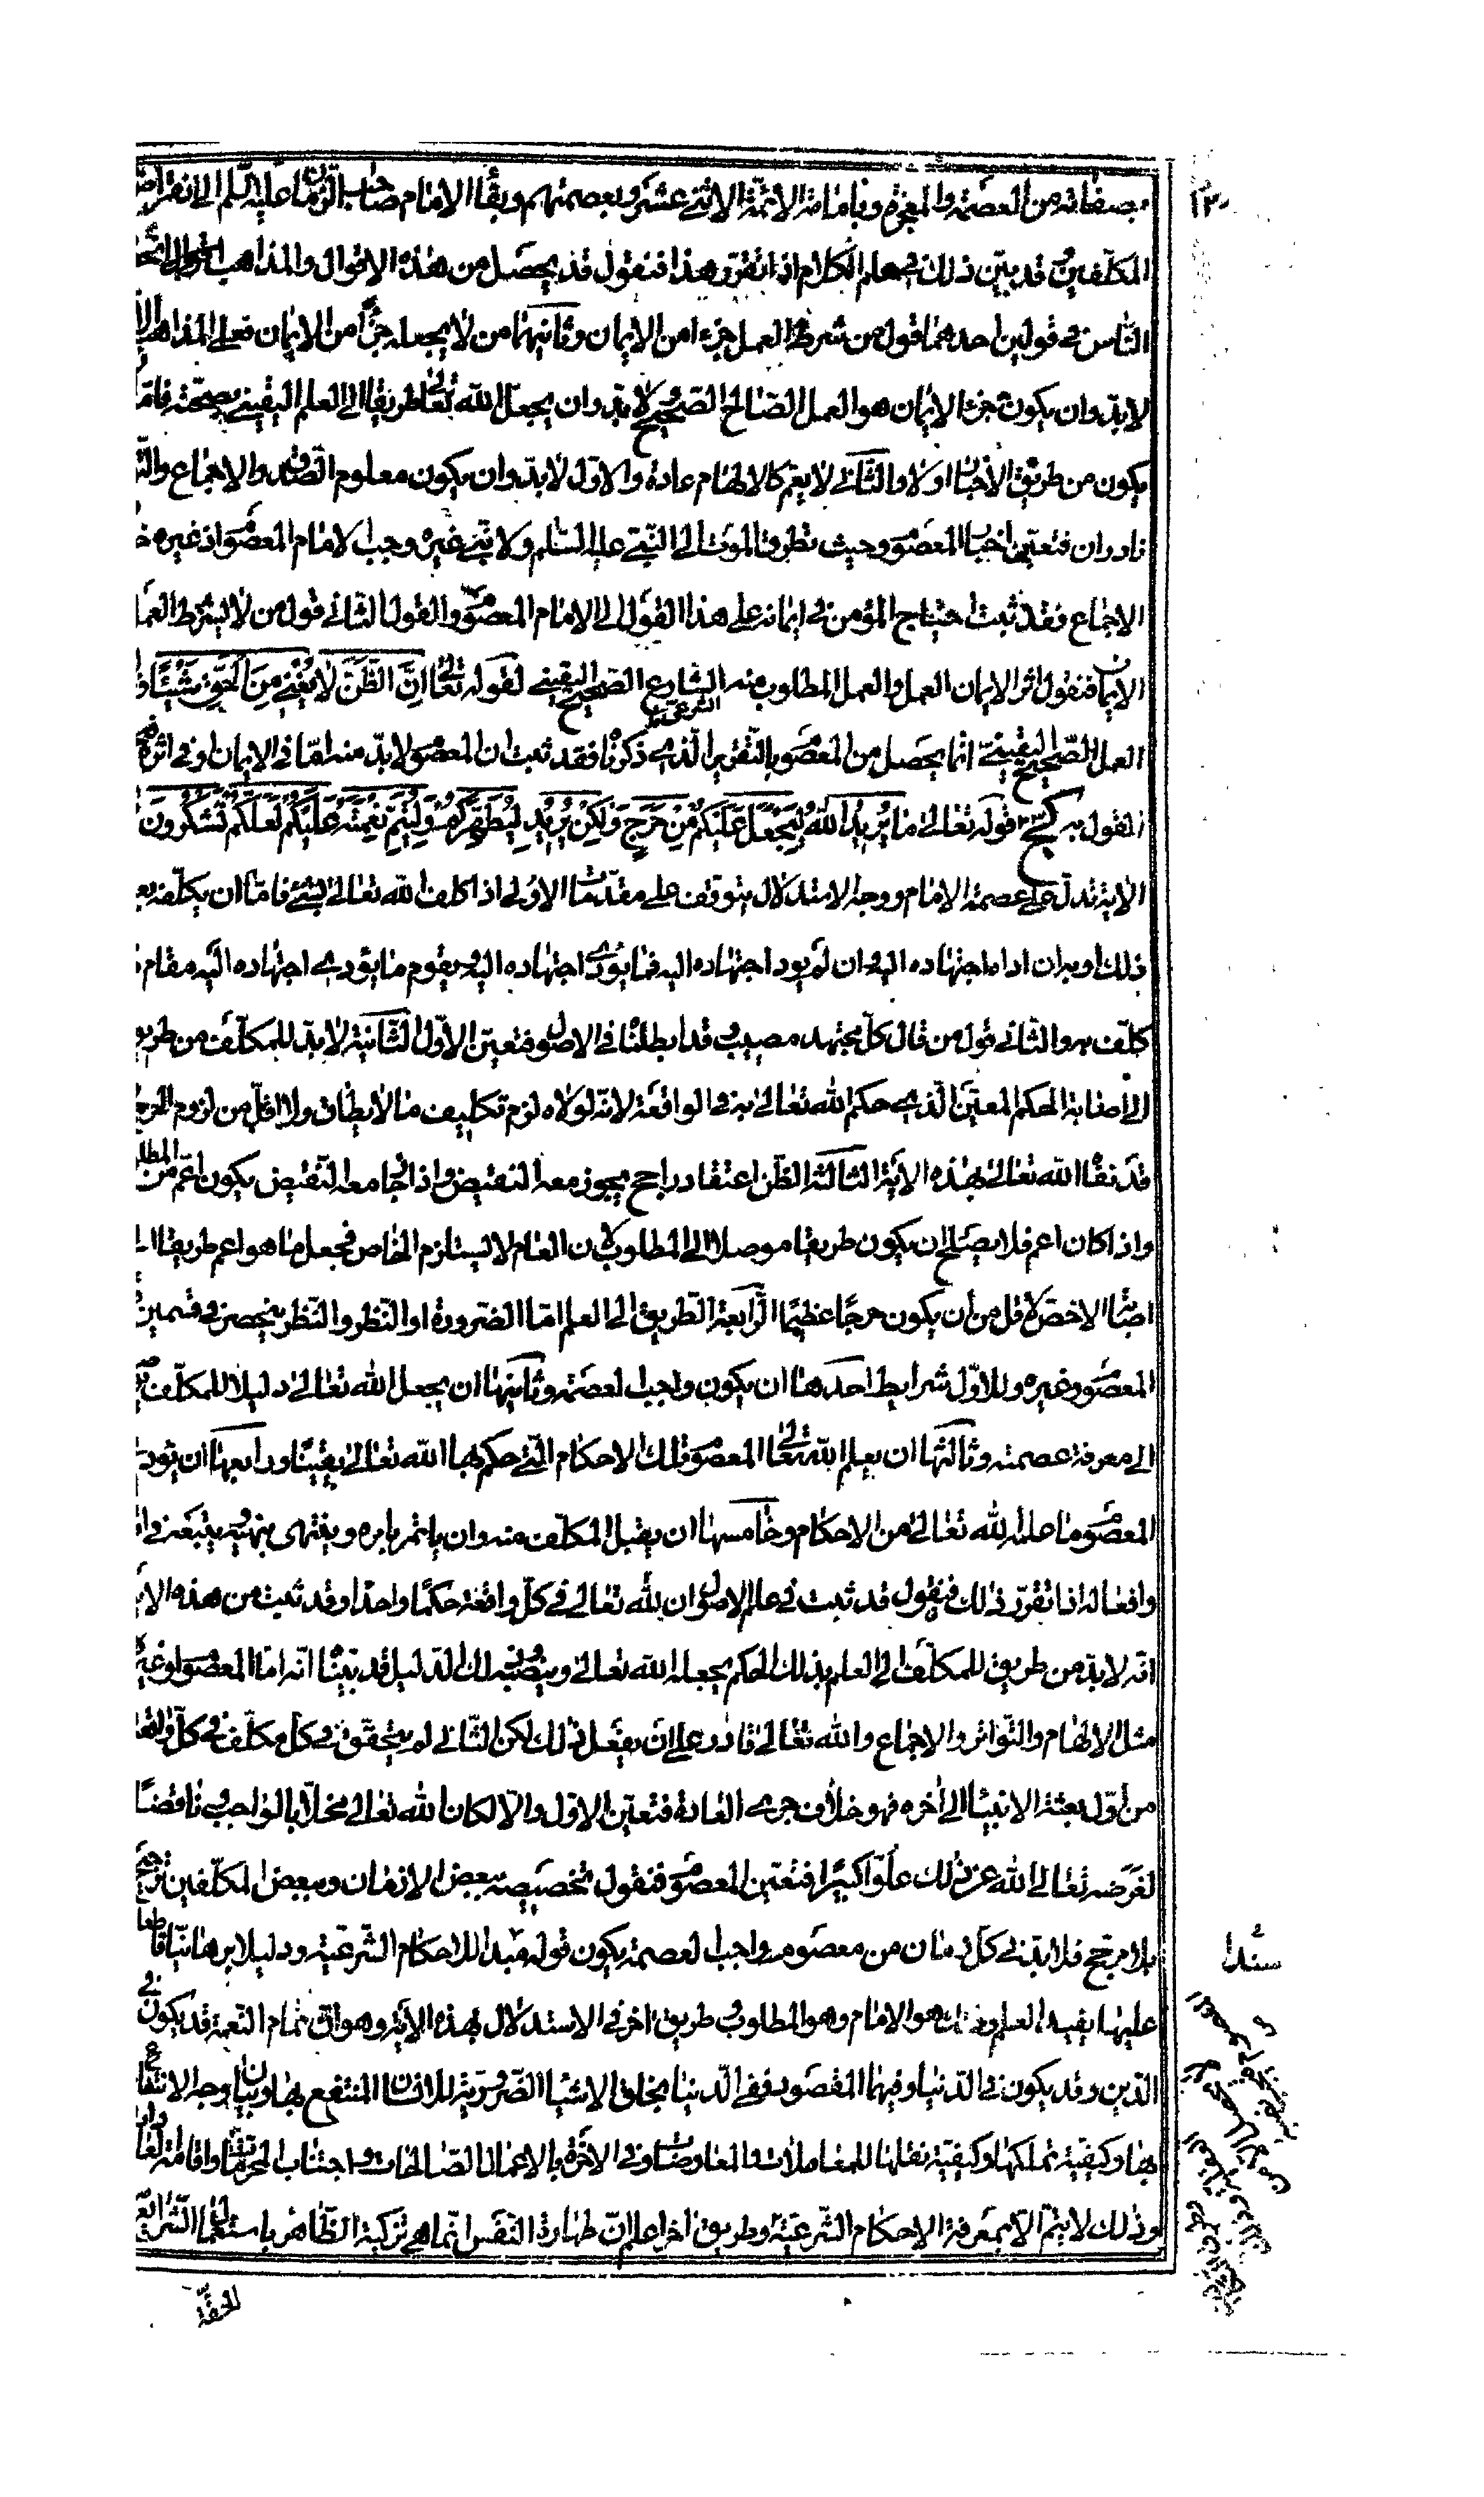 بصفاته من العصمة والمعجزة وبامامة الائمة الاثنى عشر وبعصمتهم وبقاء الامام صاحب الزمان عليه السلم الى انقراض
المكلفين وقد بين ذلك فى علم الكلام اذا تقرر هذا فنقول قد يحصل من هذه الاقوال والمذاهب
الناس فى قولين احدهما قول من شرط العمل جزءا من الايمان وثانيهما من لا يجعله جزءا من الايمان فعلى المذاهب
لابد وان يكون جزء الايمان هو العمل الصالح الصحيح لابد وان يجعل الله تعالى طريقا الى العلم اليقينى بصحته فاما
يكون من طريق الاخبار اولا والثانى لا يعم كالالهام عادة والاول لابد وان يكون معلوم الصدق والاجماع
نادران فتعين اخبار المعصوم وحيث تطرق الموت الى النبى عليه السلم ولا نبى غيره وجب الامام المعصوم اذ غيره
الاجماع فقد ثبت احتياج المؤمن فى ايمانه على هذا القول الى الامام المعصوم والقول الثانى قول من لا يشترط العمل
الايمان فنقول اثر الايمان العمل والعمل المطلوب منه الشارع الصحيح اليقينى لقوله تعالى ان الظن لا يغنى من الحق شيئا
الشرعى
العمل الصحيح اليقينى انما يحصل من المعصوم بالتقرير الذى ذكرنا فقد ثبت ان المعصوم لابد منه اما فى الايمان او فى اثره
القول به كج قوله تعالى ما يريد الله ليجعل عليكم من حرج ولكن يريد ليطهركم وليتم نعمته عليكم لعلكم تشكرون
الاية تدل على عصمة الامام ووجه الاستدلال يتوقف على مقدمات الاولى اذا كلف الله تعالى بشئ فاما ان يكلفه
ذلك او به ان اداه اجتهاده اليه وان لم يود اجتهاده اليه فما يؤدى اجتهاده اليه ويقوم ما يؤدى اجتهاده اليه مقام
كلف به والثانى قول من قال كل مجتهد مصيب وقد ابطلنا فى الاصول فتعين الاول الثانية لابد للمكلف من طريق
الى اصابة الحكم المعين الذى حكم الله تعالى به فى الواقعة لانه لولاه لزم تكليف ما لا يطاق ولا اقل من لزوم الحرج
قد نفاه الله تعالى بهذه الاية الثالثة الظن اعتقاد راجح يجوز معه النقيض واذا جامعه النقيض يكون اعم من المطلوب
واذا كان اعم فلا يصلح ان يكون طريقا موصلا الى المطلوب لان العام لا يستلزم الخاص فجعل ما هو اعم طريقا الى
الاخص لا اقل من ان يكون حرجا عظيما الرابعة الطريق الى العلم اما الضرورة او النظر والنظر ينحصر فى قسمين
المعصوم وغيره وللاول شرايط احدها ان يكون واجب العصمة وثانيها ان يجعل الله تعالى دليلا للمكلف
الى معرفة عصمته وثالثها ان يعلم الله تعالى المعصوم تلك الاحكام التى حكم بها الله تعالى يقينا ورابعها ان يودى
المعصوم ما علمه الله تعالى من الاحكام وخامسها ان يقبل المكلف منه وان ياتمر بامره وينتهى بنهيه ويتبعه فى
وافعاله اذا تقرر ذلك فنقول قد ثبت فى علم الاصول ان لله تعالى فى كل واقعة حكما واحدا وقد ثبت من هذه الاية
انه لابد من طريق للمكلف الى العلم بذلك الحكم يجعله الله تعالى وينصبه وذلك الدليل قد بينا انه اما المعصوم او غيره
مثل الالهام والتواتر والاجماع والله تعالى قادر على ان يفعل ذلك لكن الثانى لم يتحقق فى كل مكلف فى كل واقعة
من اول بعثة الانبياء الى اخره فهو خلاف جرى العادة فتعين الاول والا لكان الله تعالى مخلا بالواجب ناقضا
لغرضه تعالى الله عن ذلك علوا كبيرا فتعين المعصوم فنقول تخصيصه ببعض الازمان وببعض المكلفين ترجيح
بلا مرجح فلابد فى كل زمان من معصوم واجب العصمة يكون قوله مبدأ للاحكام الشرعية ودليلا برهانيا قاطعا
سندا
عليها يفيد العلم وذلك هو الامام وهو المطلوب طريق اخر فى الاستدلال بهذه الاية وهو ان تمام النعمة قد يكون فى
الدين وقد يكون فى الدنيا وفيهما المقصود ففى الدنيا بخلق الاشياء الضرورية للانسان المنتفع بها وبيان وجه الانتفاع
بها وكيفية تملكها وكيفية نقلها للمعاملات والمعاوضات وفى الاخرة بالاعمال الصالحات واجتناب المحرمات واقامة
وذلك لا يتم الا بمعرفة الاحكام الشرعية وطريق اخر اعلم ان طهارة النفس انما هى تزكية الظاهر باستعمال الشرائع
الحقة